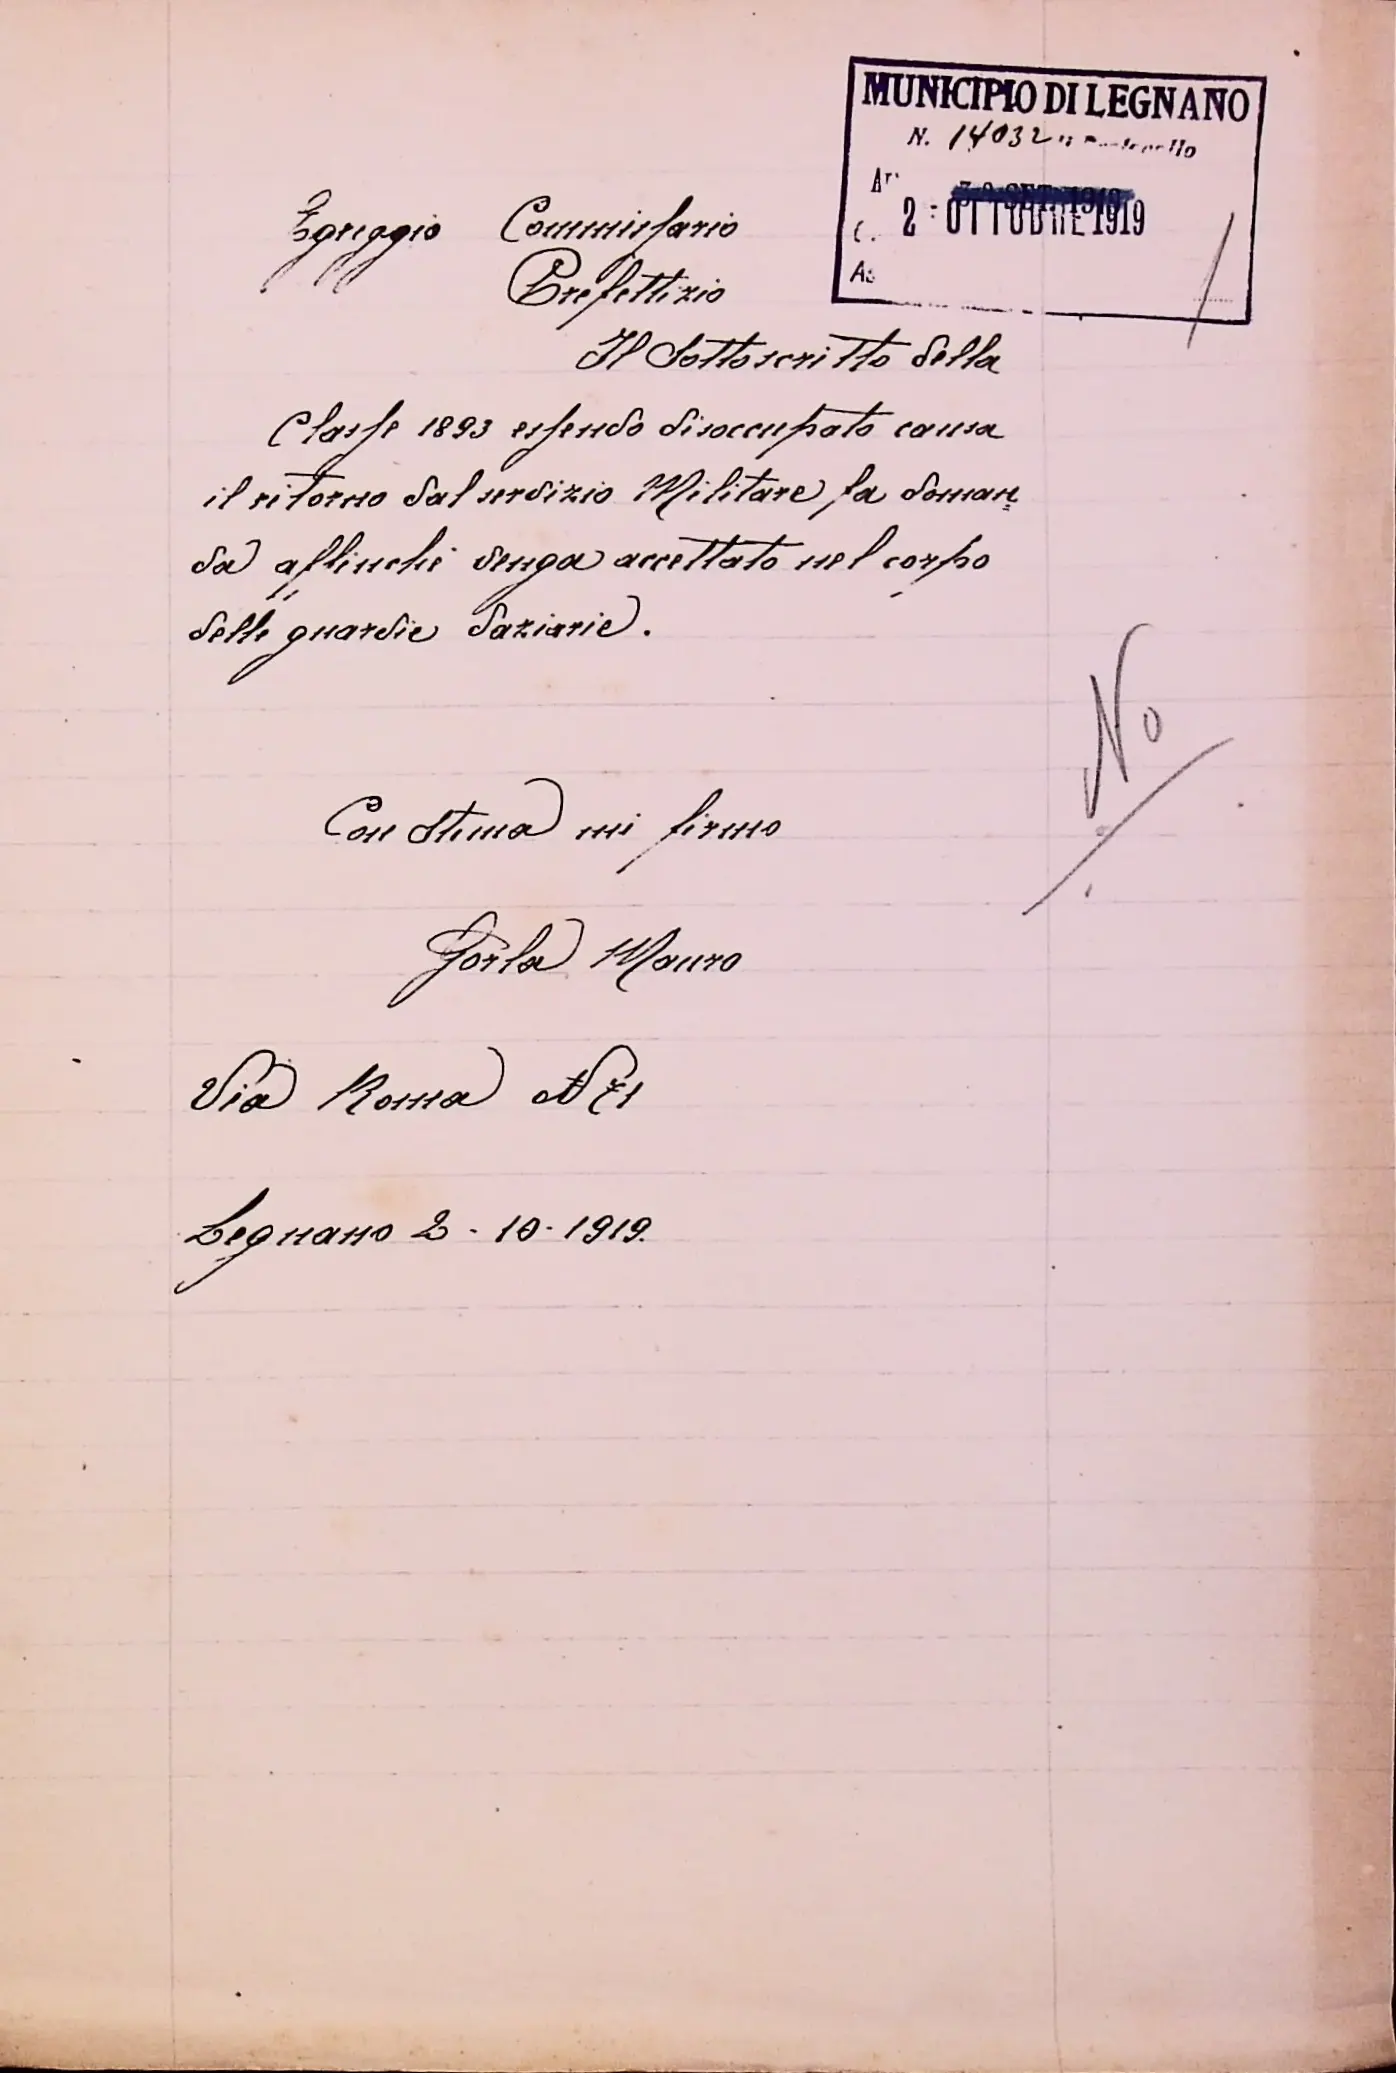 MUNICIPIO DI LEGNANO
N. 14032 di Protocollo
30 SET. 1919
2 - OTTOBRE 1919
C.
Egreggio Commissario
Prefettizio
Il Sottoscritto della
Classe 1893 essendo disoccupato causa
il ritorno dal servizio Militare fa doman
da affinchè venga accettato nel corpo
delle guardie daziarie.
No
Con stima mi firmo
Gorla Mauro
Via Roma N 71
Legnano 2 - 10 - 1919.